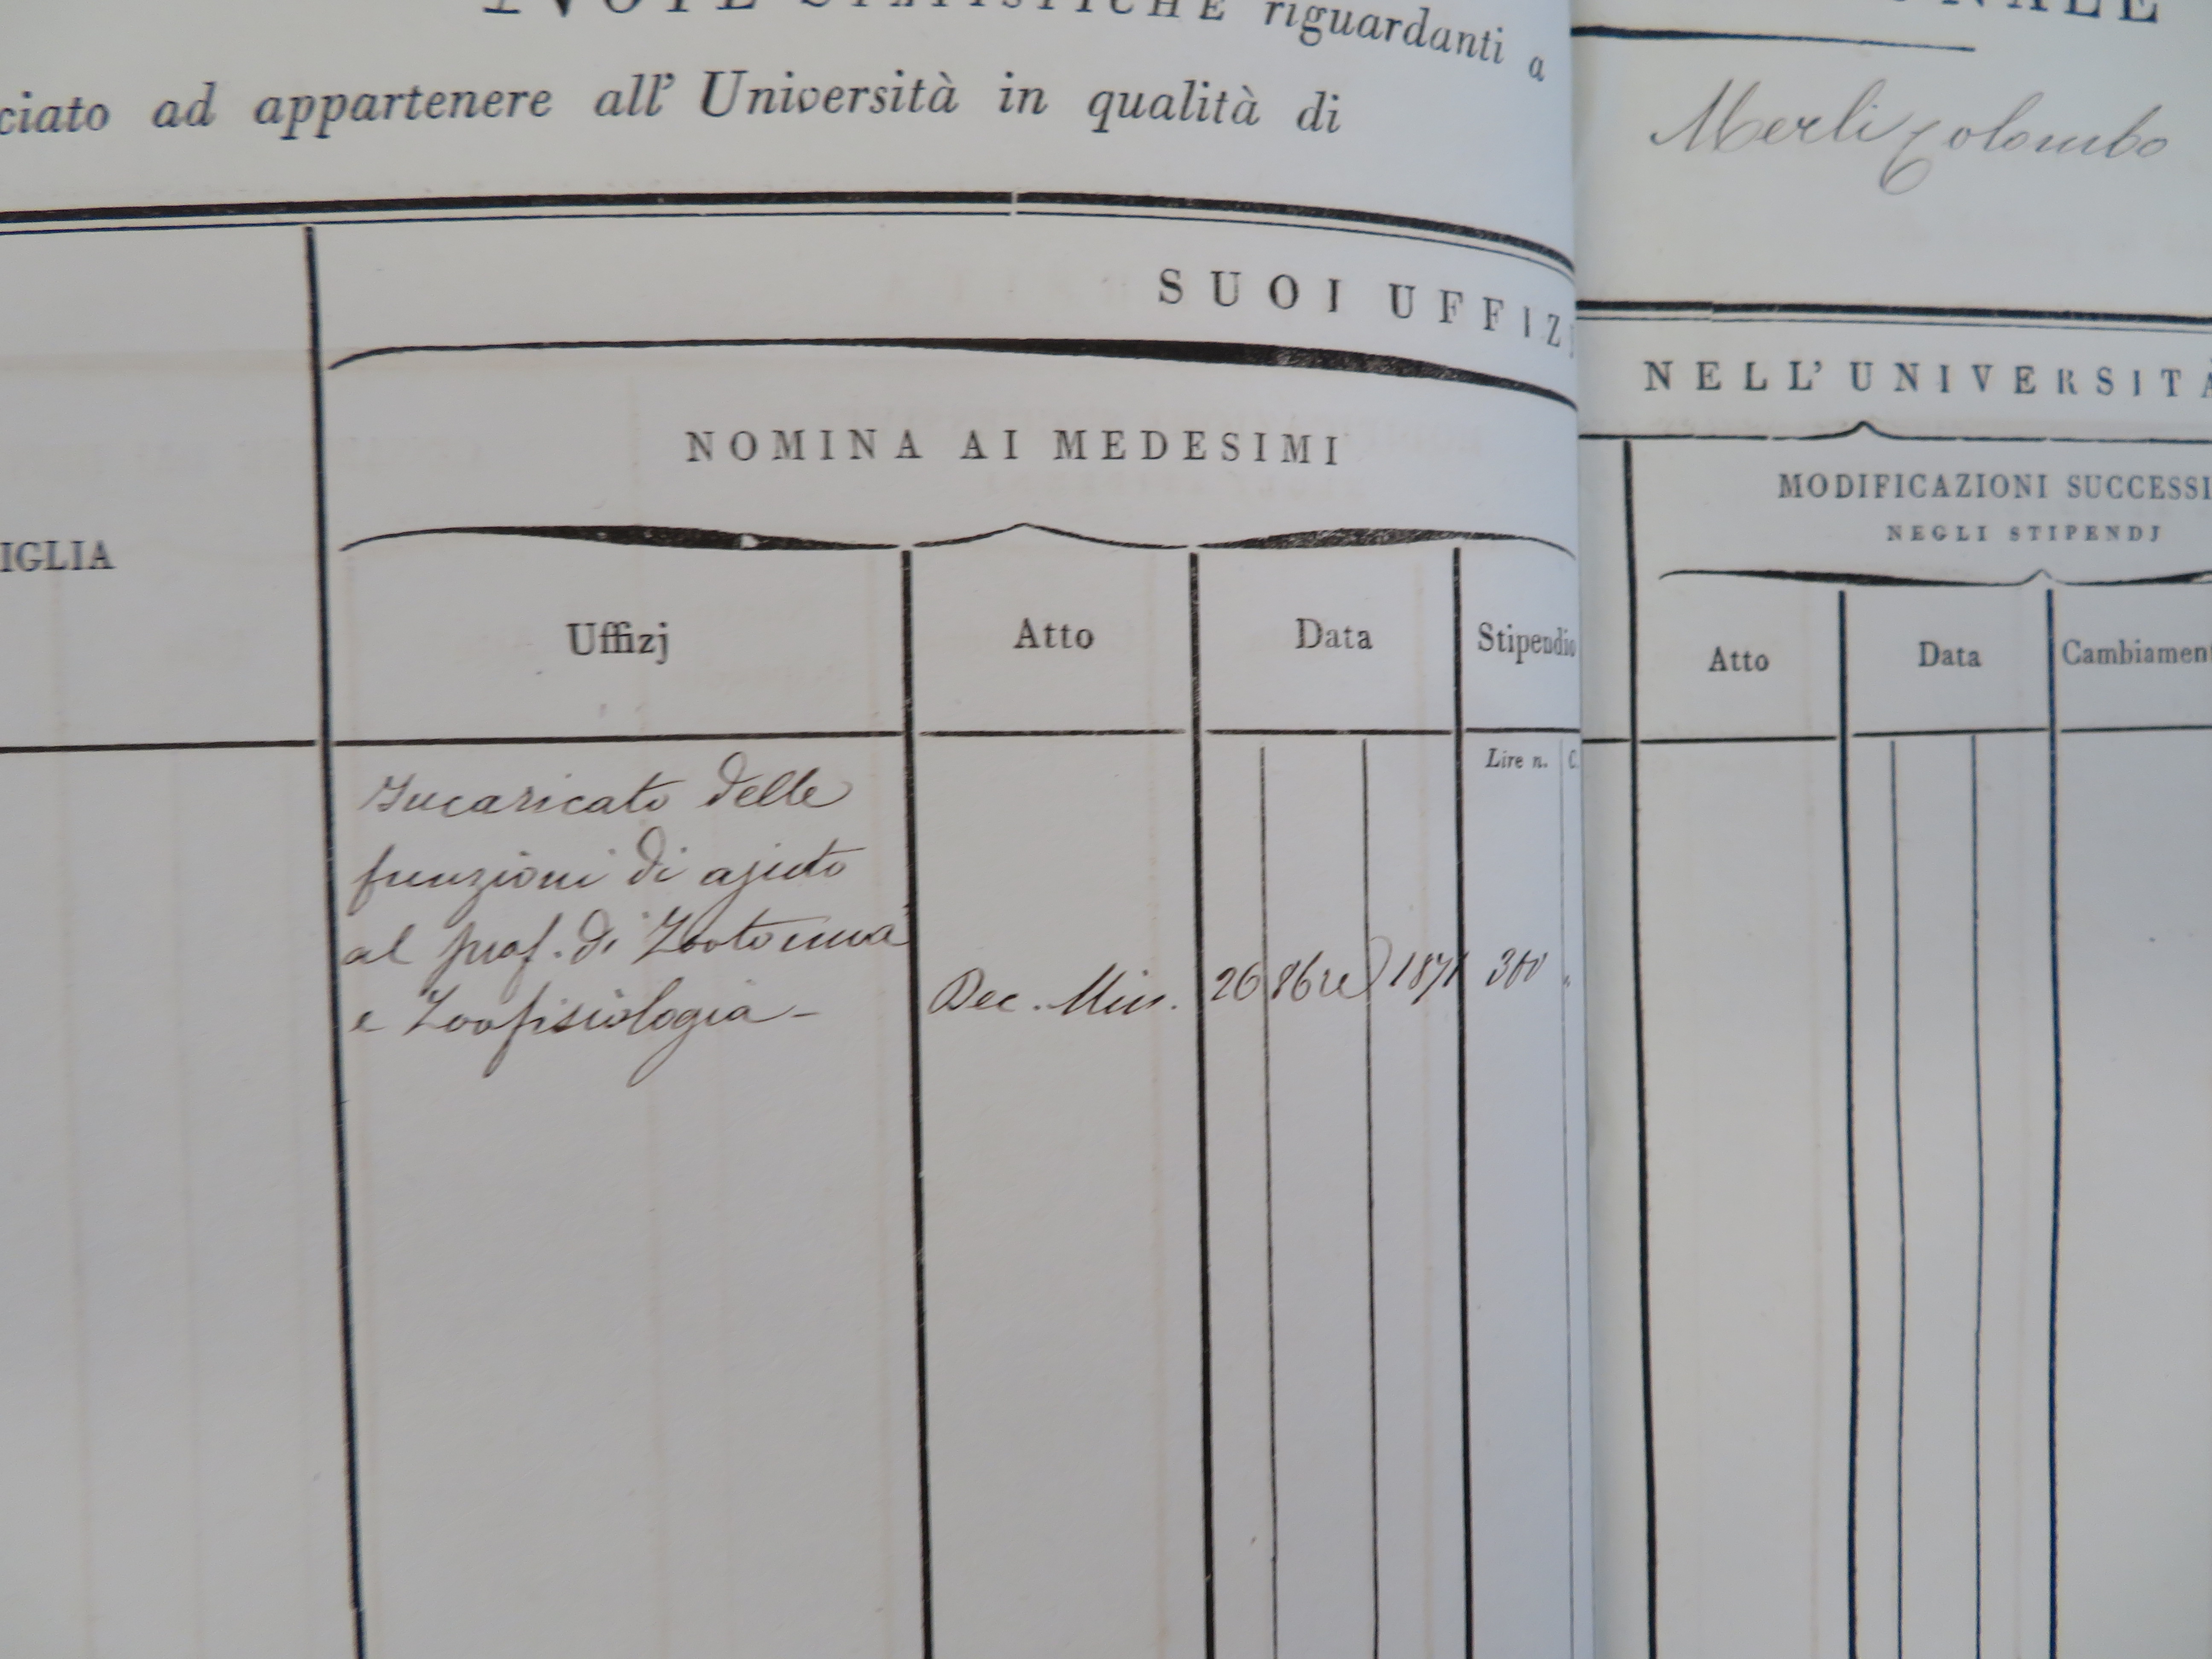 NOTE STATISTICHE riguardanti a
ciato ad appartenere all' Università in qualità di
Merli Colombo
SUOI UFFIZJ
NELL' UNIVERSITÀ
NOMINA AI MEDESIMI
MODIFICAZIONI SUCCESSI
NEGLI STIPENDJ
IGLIA
Uffizj
Atto
Data
Stipendio
Atto
Data
Cambiament
Lire n. C.
Incaricato delle
funzioni di ajuto
al prof. di Zootomia
e Zoofisiologia -
Dec. Min. 26 8bre 1871 300 "